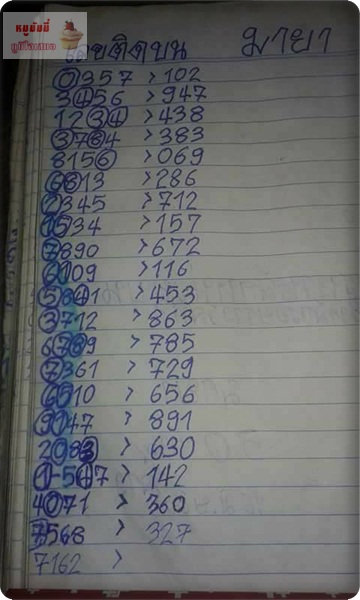 หมูอัมมี่
เลขติดบน มายา
0357 > 102
3456 > 947
1234 > 438
3784 > 383
8156 > 069
6813 > 286
2345 > 712
1534 > 157
7890 > 672
6109 > 116
5841 > 453
3712 > 863
6789 > 785
7361 > 729
6510 > 656
9147 > 891
2083 > 630
1-547 > 142
4071 > 360
7568 > 327
7162 >